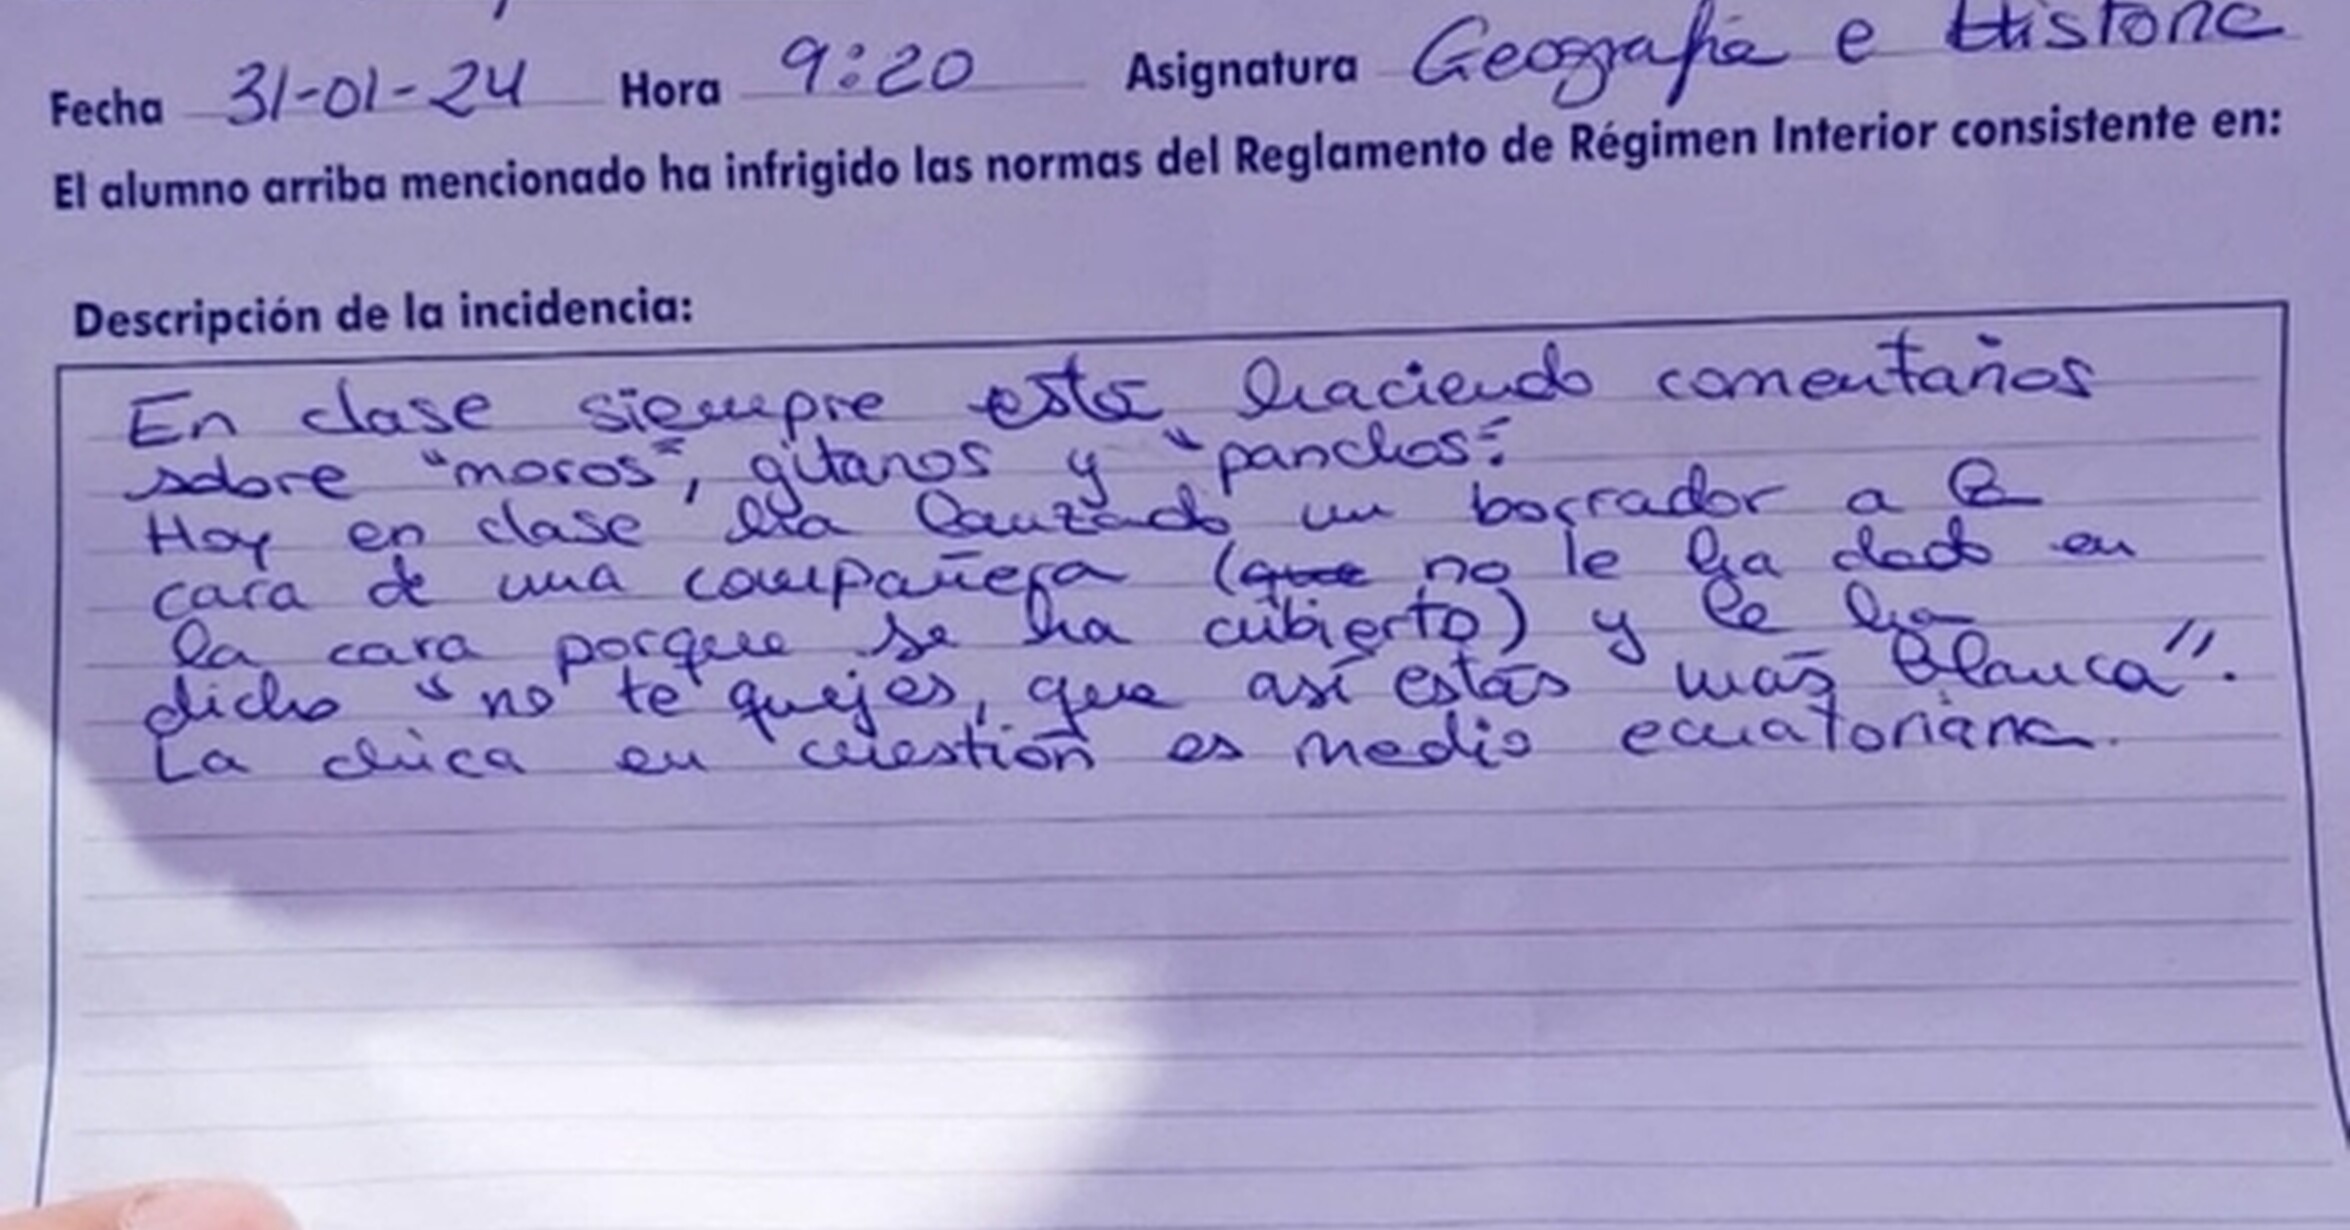 Fecha 31-01-24 Hora 9:20 Asignatura Geografía e Historia
El alumno arriba mencionado ha infrigido las normas del Reglamento de Régimen Interior consistente en:
Descripción de la incidencia:
En clase siempre está haciendo comentarios
sobre "moros", gitanos y "panchos".
Hoy en clase ha lanzado un borrador a la
cara de una compañera (que no le ha dado en
la cara porque se ha cubierto) y le ha
dicho "no te quejes, que así estás más blanca".
La chica en cuestión es medio ecuatoriana.